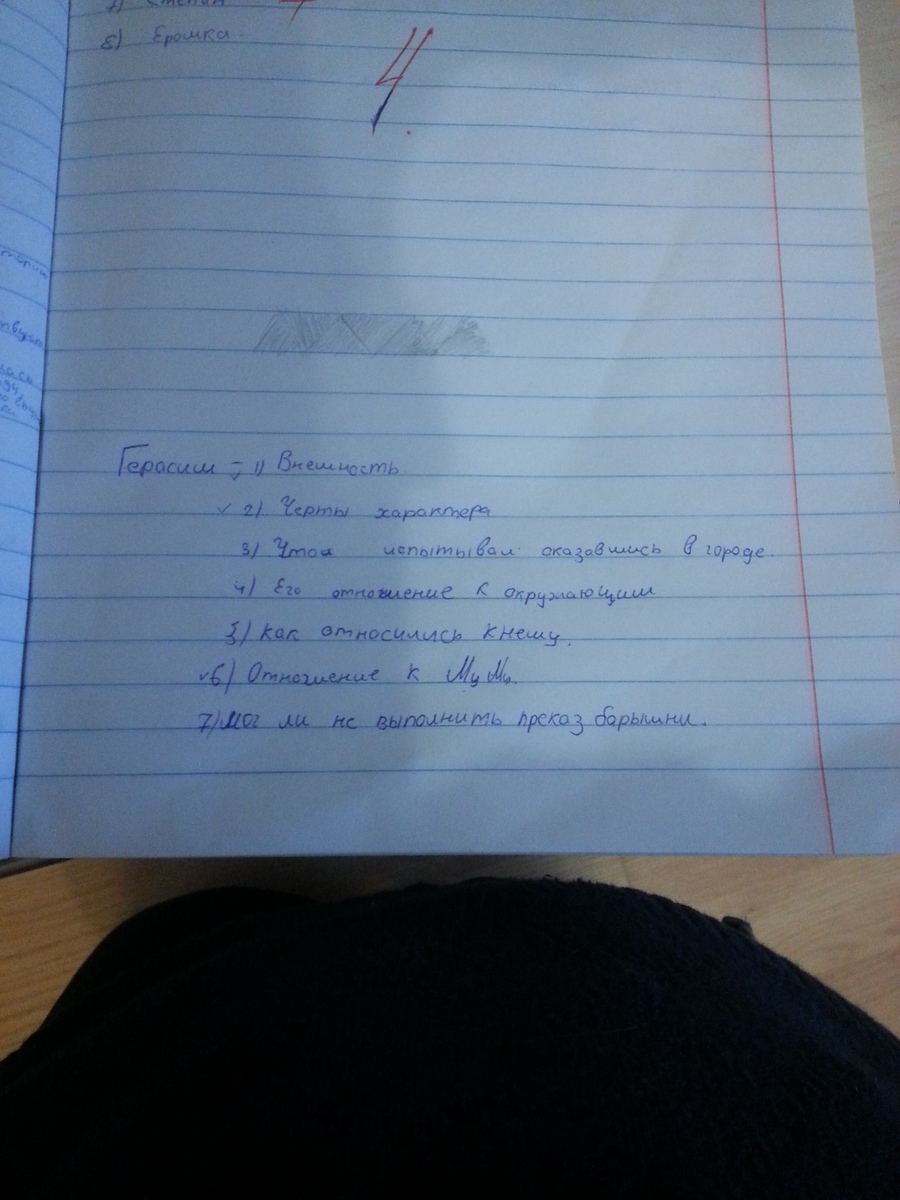 8) Ерошка.
4
Герасим - 1) Внешность.
2) Черты характера
3) Чтоя испытывал оказавшись в городе.
4) Его отношение к окружающим
5) Как относились к нему.
6) Отношение к Му Му.
7) Мог ли не выполнить преказ барышни.